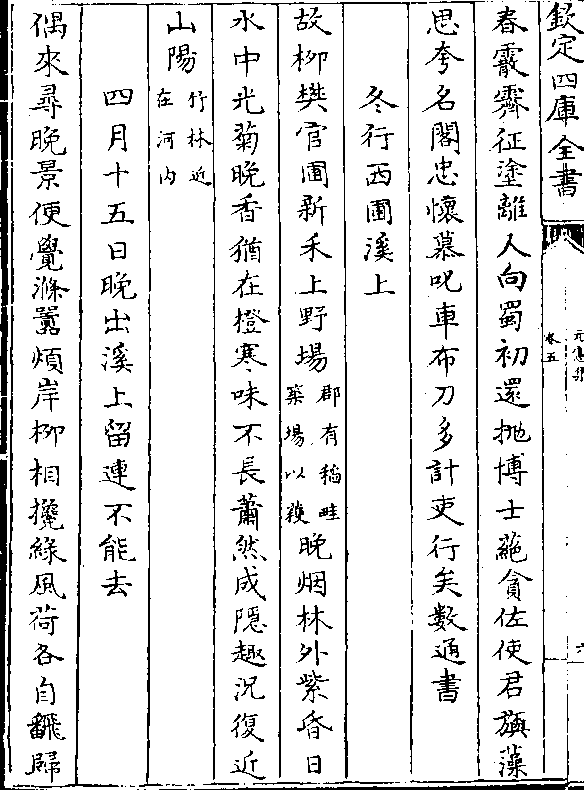 欽定四庫全書
元憲集
卷五
六
春霰霽征塗離人向蜀初還抛博士蕝貪佐使君旟藻
思夸名閣忠懷慕叱車布刀多計吏行矣數通書
冬行西圃溪上
故柳樊官圃新禾上野場郡有稲畦築場以穫晚烟林外紫昏日
水中光菊晚香猶在橙寒味不長蕭然成隱趣況復近
山陽竹林近在河内
四月十五日晚出溪上留連不能去
偶來尋晚景便覺滌嚣煩岸柳相攙綠風荷各自飜歸